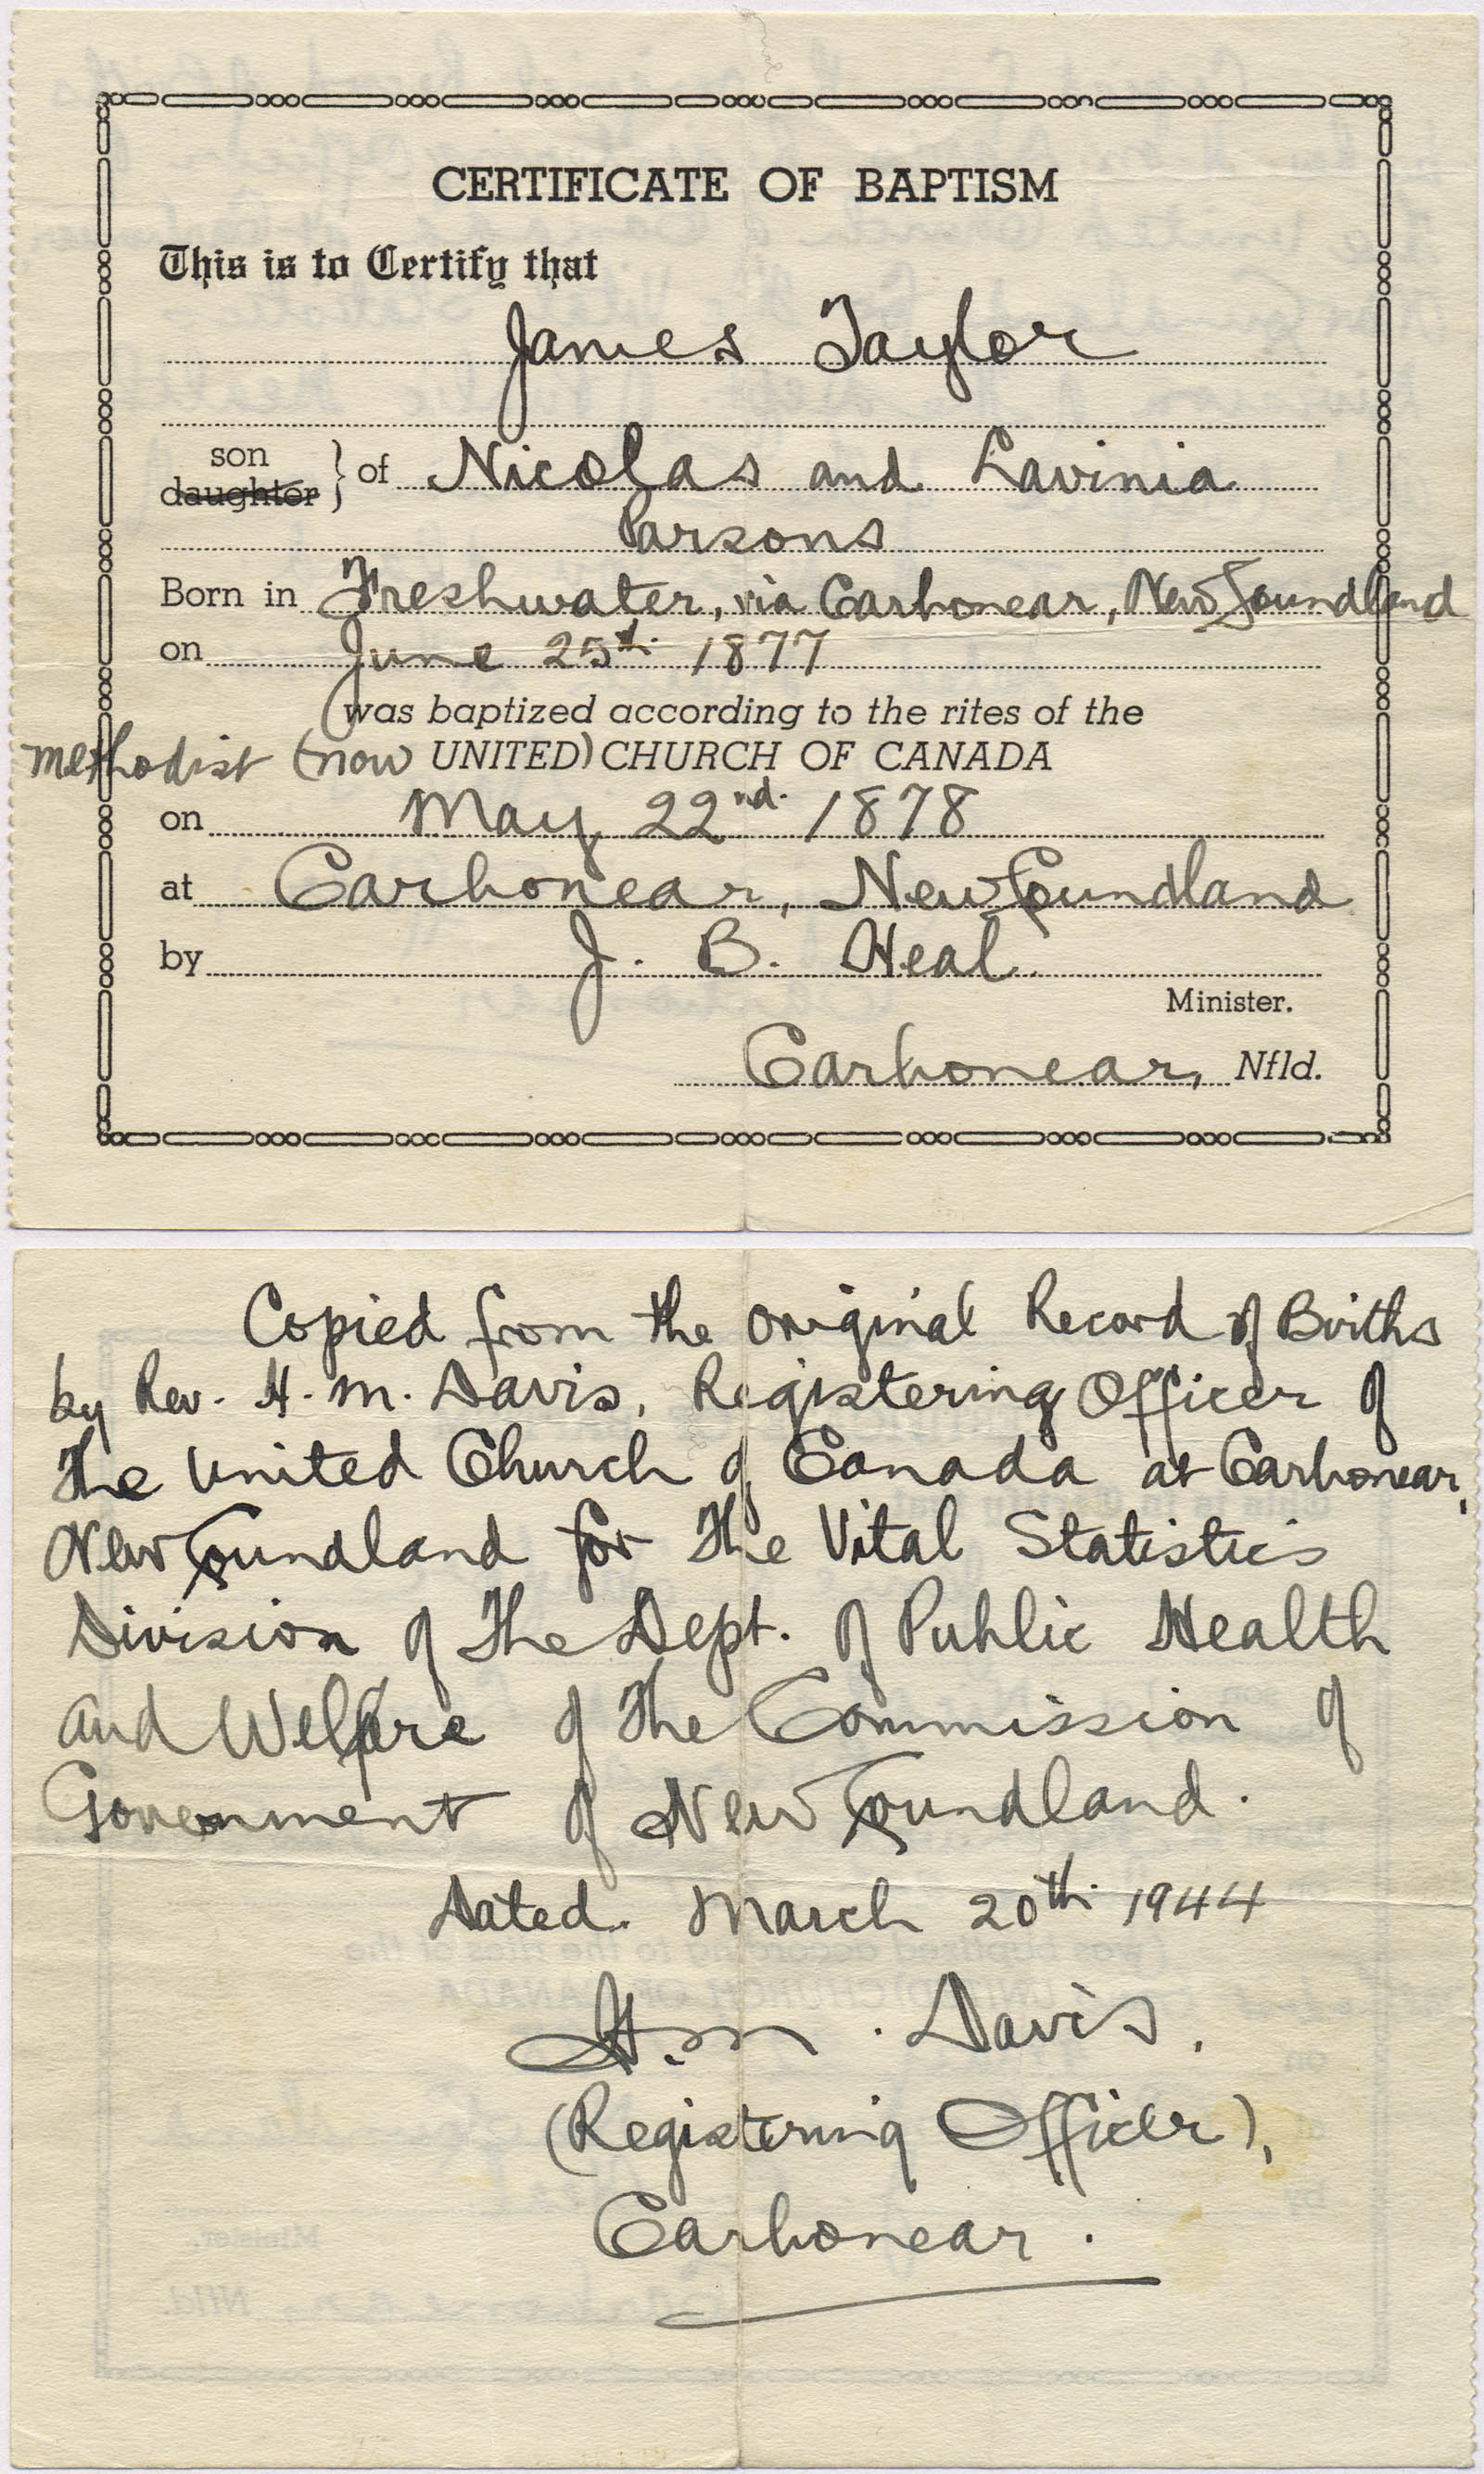 CERTIFICATE OF BAPTISM
This is to Certify that
James Taylor
son
daughter } of Nicolas and Lavinia
Parsons
Born in Freshwater, via Carbonear, Newfoundland
on June 25th. 1877
was baptized according to the rites of the
Methodist (now UNITED) CHURCH OF CANADA
on May 22nd. 1878
at Carbonear, Newfoundland
by J. B. Heal.
Minister.
Carbonear, Nfld.
Copied from the original Record of Births
by Rev. H. M. Davis, Registering Officer of
The United Church of Canada at Carbonear,
Newfoundland for The Vital Statistics
Division of The Dept. of Public Health
and Welfare of The Commission of
Government of Newfoundland.
Dated. March 20th. 1944
H. M. Davis.
(Registering Officer),
Carbonear.